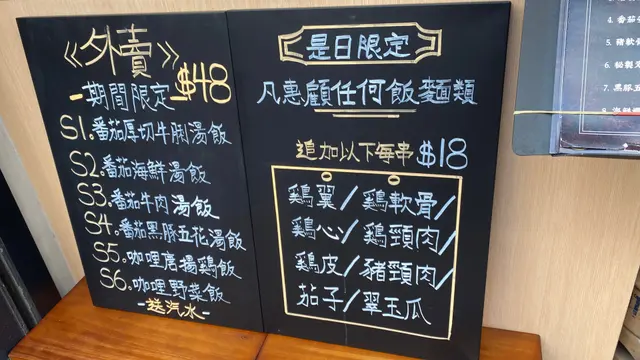 《外賣》
期間限定 $48
S1.番茄厚切牛脷湯飯
S2.番茄海鮮湯飯
S3.番茄牛肉湯飯
S4.番茄黑豚五花湯飯
S5.咖哩唐揚鷄飯
S6.咖哩野菜飯
-送汽水-
是日限定
凡惠顧任何飯麵類
追加以下每串$18
鷄翼/鷄軟骨/
鷄心/鷄頸肉/
鷄皮/豬頸肉/
茄子/翠玉瓜
4. 番茄
5.
6.
7. 黑豚五
8. 海鮮